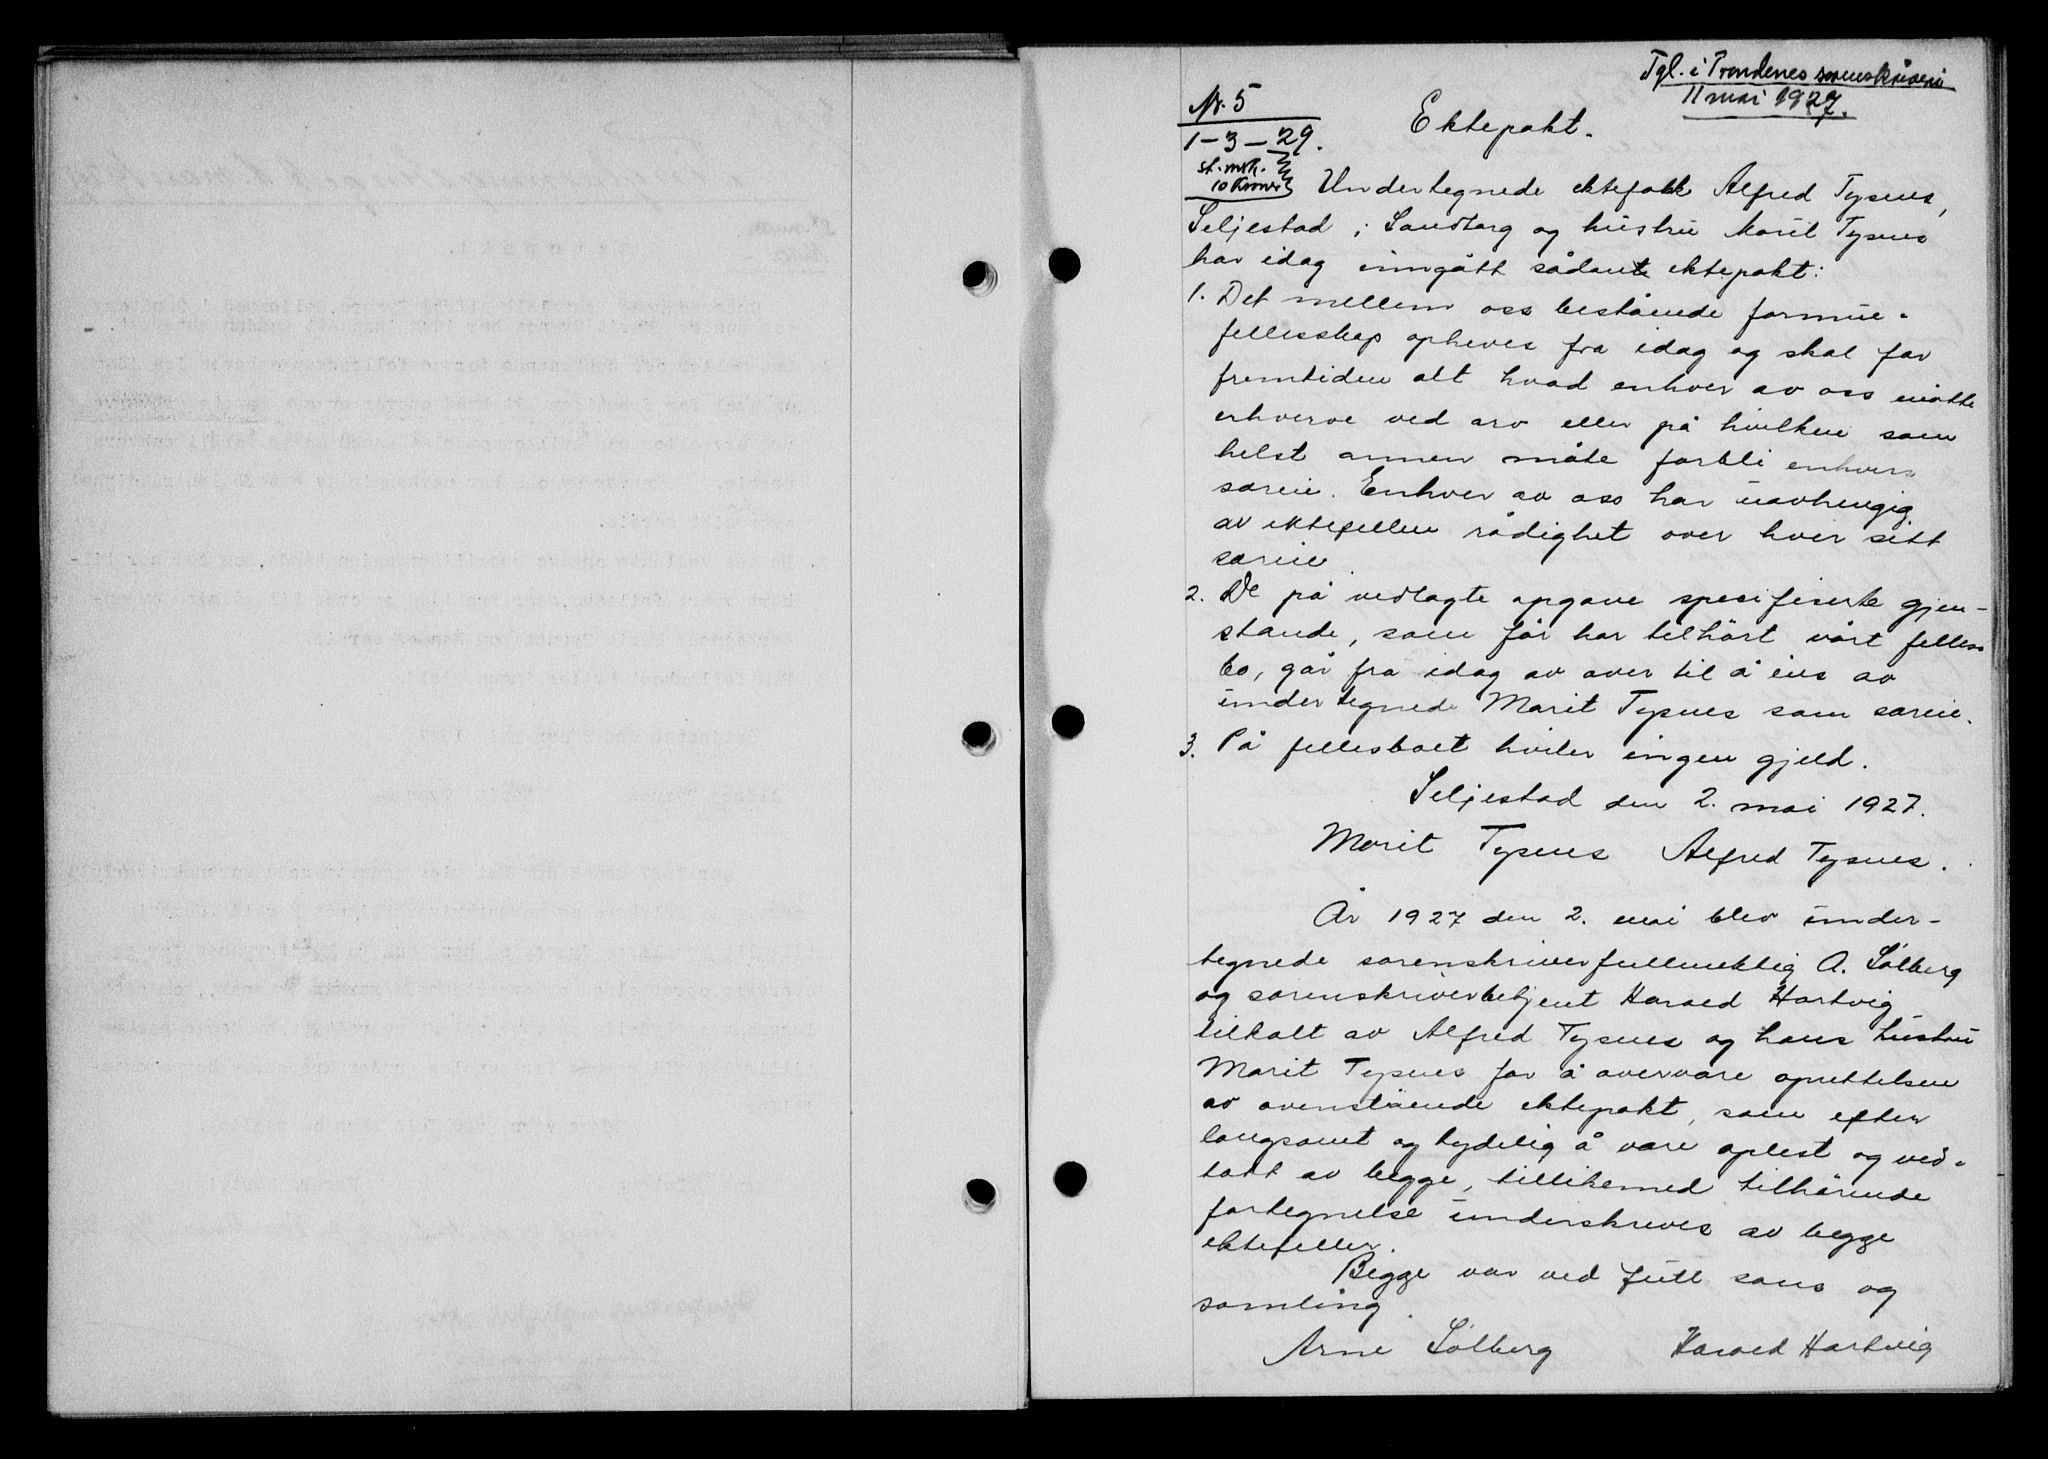 Tgl. i Trondenes sorenskriveri
11 mai 1927.
Nr. 5
1-3-29.
Ektepakt.
st.mrk.
10 Kroner
Undertegnede ektefolk Alfred Tysnes,
Seljestad i Sandtorg og hustru Marit Tysnes
har idag inngått sådant ektepakt:
1. Det mellem oss bestående formue-
fellesskap opheves fra idag og skal for
fremtiden alt hvad enhver av oss måtte
erhverve ved arv eller på hvilken som
helst annen måte forbli enhvers
særeie. Enhver av oss har uavhengig
av ektefellen rådighet over hver sitt
særeie.
2. De på vedlagte opgave spesifiserte gjen-
stande, som før har tilhørt vårt felles
bo, går fra idag av over til å eies av
undertegnede Marit Tysnes som særeie.
3. På fellesboet hviler ingen gjeld.
Seljestad den 2. mai 1927.
Marit Tysnes Alfred Tysnes.
År 1927 den 2. mai blev under-
tegnede sorenskriverfullmektig A. Solberg
og sorenskriverbetjent Harald Hartvig
tilkalt av Alfred Tysnes og hans hustru
Marit Tysnes for å overvære oprettelsen
av ovenstående ektepakt, som efter
langsomt og tydelig å være oplest og ved-
tatt av begge, tillikemed tilhørende
fortegnelse underskreves av begge
ektefeller.
Begge var ved full sans og
samling.
Arne Solberg Harald Hartvig